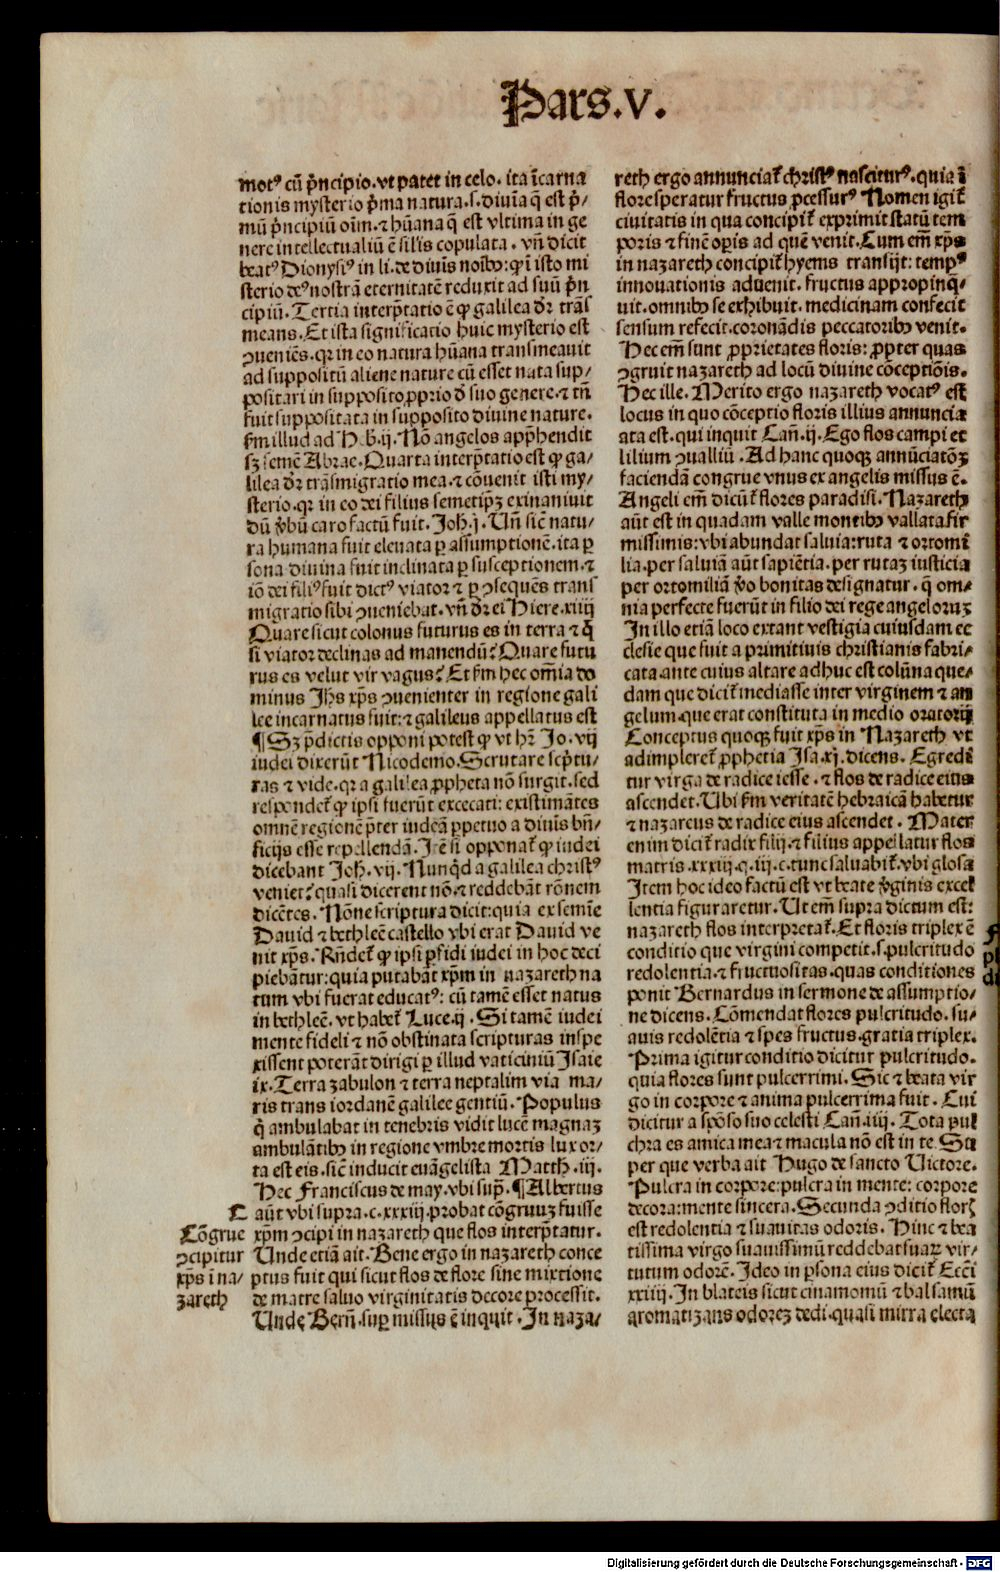 Pars.V.
motꝰ cū p̄ncipio.vt patet in celo. ita īcarna
tionis mysterio p̄ma natura.s.diuīa q̄ est p̄/
mū p̄ncipiū oīm.⁊ hūana q̄ est vltima in ge
nere intellectualiū ē sil'is copulata. vn̄ dicit
beatꝰ Dionysiꝰ in li.de diuīs noībꝯ:qꝛ ī isto mi
sterio deꝰ nostrā eternitatē reduxit ad suū p̄n
cipiū. Tertia interp̄tatio ē ꝙ galilea d̄r trās
means. Et ista significatio huic mysterio est
ꝯueniēs.qꝛ in eo natura hūana transmeauit
ad suppositū aliene nature cū esset nata sup/
positari in supposito ꝓprio d̄ suo genere.⁊ tn̄
fuit suppositata in supposito diuine nature.
s̄m illud ad Hb̄.ij. Nō angelos app̄hendit
sꝫ semē Abrae. Quarta interp̄tatio est ꝙ ga/
lilea d̄r trāsmigratio mea.⁊ cōuenit isti my/
sterio.qꝛ in eo dei filius semetip̄ꝫ exinaniuit
dū v̄bū caro factū fuit. Joh.j. Un̄ sic̄ natu/
ra humana fuit eleuata ꝑ assumptionē.ita ꝑ
sona diuina fuit inclinata ꝑ susceptionem.⁊
iō dei filiꝰ fuit dictꝰ viator ⁊ ꝑ ꝯsequēs trans
migratio sibi ꝯueniebat. vn̄ d̄r ei Hiere.xiiij
Quare sicut colonus futurus es in terra ⁊ q̄
si viator declinas ad manendū? Quare futu
rus es velut vir vagus? Et s̄m hec om̄ia do
minus Jh̄s xp̄s ꝯuenienter in regione gali
lee incarnatus fuit:⁊ galileus appellatus est
¶ Sꝫ p̄dictis opponi potest ꝙ vt hr̄ Jo.vij
iudei dixerūt Nicodemo. Scrutare scp̄tu/
ras ⁊ vide.qꝛ a galilea ꝓpheta nō surgit.sed
respondet̄ ꝙ ipsi fuerūt excecati: existimātes
omnē regionē p̄ter iudeā ꝑpetuo a diuīs bn̄/
ficijs esse repellendā. Jtē si opponat̄ ꝙ iudei
dicebant Joh.vij. Nunqd̄ a galilea christꝰ
veniet? quasi dicerent nō.⁊ reddebāt rōnem
dicētes. Nōne scriptura dicit:quia ex semīe
Dauid ⁊ bethleē castello vbi erat Dauid ve
nit xp̄s. Rn̄det̄ ꝙ ipsi ꝑfidi iudei in hoc deci
piebātur:quia putabāt xp̄m in nazareth na
tum vbi fuerat educatꝰ: cū tamē esset natus
in bethleē.vt habet̄ Luce.ij. Si tamē iudei
mente fideli ⁊ nō obstinata scripturas inspe
xissent poterāt dirigi ꝑ illud vaticiniū Jsaie
ix. Terra zabulon ⁊ terra neptalim via ma/
ris trans iordanē galilee gentiū. Populus
q̄ ambulabat in tenebris vidit lucē magnaꝫ
ambulātibꝯ in regione vmbre mortis lux or/
ta est eis.sic̄ inducit euāgelista Matth.iij.
Hec Franciscus de may.vbi sup̄. ¶ Albertus
C aūt vbi supra.c.xxxiij.probat cōgruuꝫ fuisse
xp̄m ꝯcipi in nazareth que flos interp̄tatur.
Unde etiā ait. Bene ergo in nazareth conce
ptus fuit qui sicut flos de flore sine mixtione
de matre saluo virginitatis decore processit.
Unde Bern̄.sup̄ missus ē inquit. Jn naza/
Cōgrue
ꝯcipitur
xp̄s ī na/
zareth
reth ergo annunciat̄ christꝰ nasciturꝰ.quia ī
flore speratur fructus ꝓcessurꝰ Nomen igit̄
ciuitatis in qua concipit̄ exprimit statū tem
poris ⁊ finē oꝑis ad quē venit. Cum em̄ xp̄s
in nazareth concipit̄ hyems transijt: tempꝰ
innouationis aduenit. fructus appropinq̄/
uit.omnibꝯ se exhibuit. medicinam confecit
sensum refecit.coronādis peccatoribꝯ venit.
Hec em̄ sunt ꝓprietates floris: ꝓpter quas
ꝯgruit nazareth ad locū diuine cōceptiōis.
Hec ille. Merito ergo nazareth vocatꝰ est
locus in quo cōceptio floris illius annuncia
ata est.qui inquit Can̄.ij. Ego flos campi et
lilium ꝯualliū. Ad hanc quoqꝫ annūciatōꝫ
faciendā congrue vnus ex angelis missus ē.
Angeli em̄ dicūt̄ flores paradisi. Nazareth
aūt est in quadam valle montibꝯ vallata fir
missimis:vbi abundat saluia:ruta ⁊ ortomī
lia.per saluiā aūt sapiētia.per rutaꝫ iusticia
per ortomiliā v̄o bonitas designatur. q̄ om/
nia perfecte fuerūt in filio dei rege angeloruꝫ
Jn illo etiā loco extant vestigia cuiusdam ec
clesie que fuit a primitiuis christianis fabri/
cata.ante cuius altare adhuc est colūna que/
dam que dicit̄ mediasse inter virginem ⁊ an
gelum.que erat constituta in medio oratorij
Conceptus quoqꝫ fuit xp̄s in Nazareth vt
adimpleret̄ ꝓphetia Jsa.xj.dicens. Egredī
tur virga de radice iesse. ⁊ flos de radice eius
ascendet. Ubi s̄m veritatē hebraicā habetur
⁊ nazareus de radice eius ascendet. Mater
enim dicit̄ radix filij ⁊ filius appellatur flos
matris.xxxiij.q.iij.c.tunc saluabit̄.vbi glosa
Jtem hoc ideo factū est vt beate v̄ginis excel
lentia figuraretur. Ut em̄ supra dictum est:
nazareth flos interpretat̄. Et floris triplex ē
conditio que virgini competit.s.pulcritudo
redolentia.⁊ fructuositas.quas conditiones
ponit Bernardus in sermone de assumptio/
ne dicens. Cōmendat flores pulcritudo. su/
auis redolētia ⁊ spes fructus.gratia triplex.
Prima igitur conditio dicitur pulcritudo.
quia flores sunt pulcerrimi. Sic ⁊ beata vir
go in corpore ⁊ anima pulcerrima fuit. Cui
dicitur a spōso suo celesti Can̄.iiij. Tota pul
chra es amica mea ⁊ macula nō est in te. Su
per que verba ait Hugo de sancto Uictore.
Pulcra in corpore:pulcra in mente: corpore
decora:mente sincera. Secunda ꝯditio florꝫ
est redolentia ⁊ suauitas odoris. Hinc ⁊ bea
tissima virgo suauissimū reddebat suaꝝ vir/
tutum odorē. Jdeo in ꝑsona eius dicit̄ Ecc̄i
xxiiij. Jn blateis sicut cinamomū ⁊ balsamū
aromatizans odoreꝫ dedi.quasi mirra electa
Digitalisierung gefördert durch die Deutsche Forschungsgemeinschaft - DFG